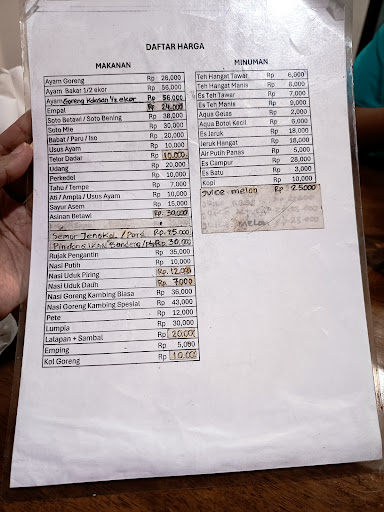 DAFTAR HARGA
MAKANAN
Ayam Goreng Rp 26,000
Ayam Bakar 1/2 ekor Rp 56,000
Ayam Goreng Kalasan 1/2 ekor Rp 56,000
Empal Rp 24.000
Soto Betawi / Soto Bening Rp 38,000
Soto Mie Rp 30,000
Babat / Paru / Iso Rp 20,000
Usus Ayam Rp 10,000
Telor Dadar Rp 10.000
Udang Rp 20,000
Perkedel Rp 10,000
Tahu / Tempe Rp 7,000
Ati / Ampla / Usus Ayam Rp 10,000
Sayur Asem Rp 15,000
Asinan Betawi Rp 30.000
Semur Jengkol / Pors Rp. 25.000
Rp 30.000
Rujak Pengantin Rp 35,000
Nasi Putih Rp 10,000
Nasi Uduk Piring Rp. 12.000
Nasi Uduk Dauh Rp. 7000
Nasi Goreng Kambing Biasa Rp 36,000
Nasi Goreng Kambing Spesial Rp 43,000
Pete Rp 12,000
Lumpia Rp 30,000
Lalapan + Sambal Rp 20.000
Emping Rp 5,000
Kol Goreng Rp 10.000
MINUMAN
Teh Hangat Tawar Rp 6,000
Teh Hangat Manis Rp 8,000
Es Teh Tawar Rp 7,000
Es Teh Manis Rp 9,000
Aqua Gelas Rp 2,000
Aqua Botol Kecil Rp 6,000
Es Jeruk Rp 18,000
Jeruk Hangat Rp 18,000
Es Campur Rp 28,000
Air Putih Panas Rp 5,000
Es Batu Rp 3,000
Kopi Rp 10,000
Juice melon Rp 25000